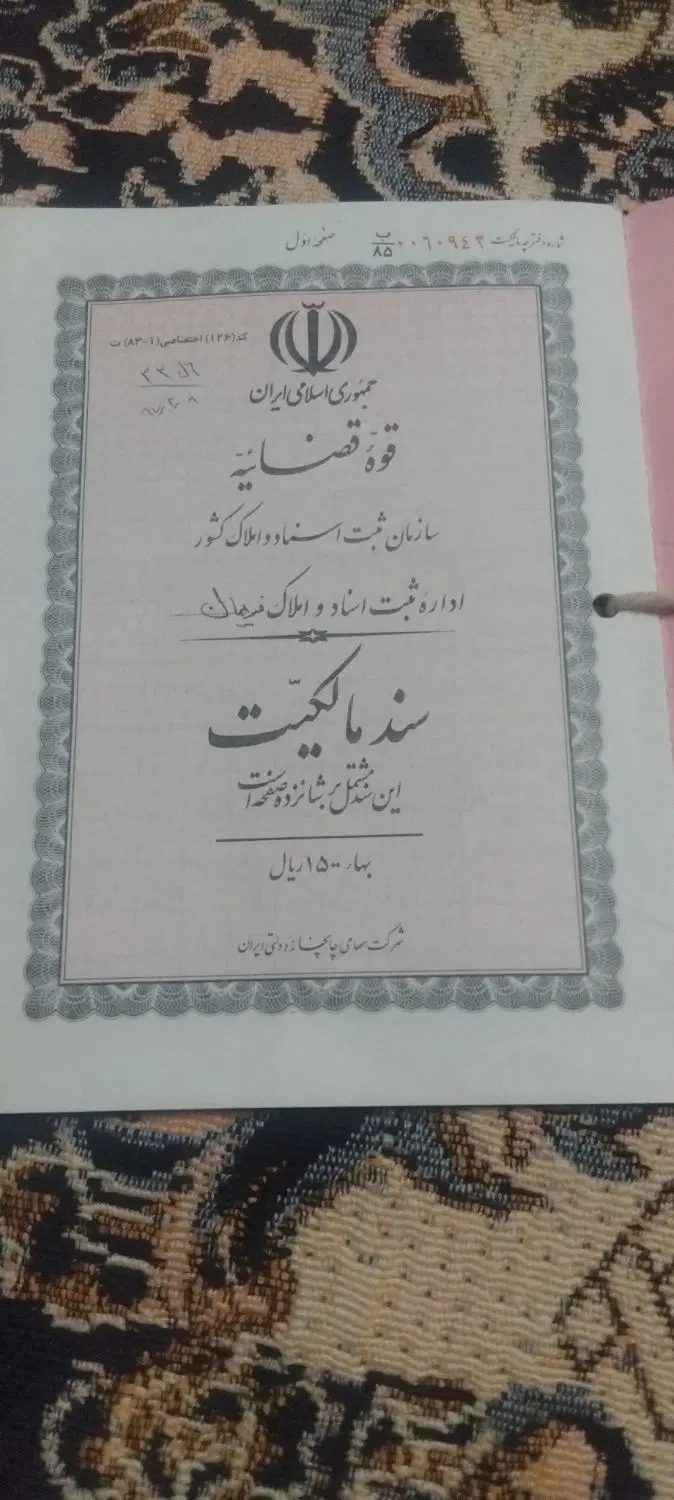 شماره دفترچه مالکیت ۰۰٦۰۹٤۳ ب/۸۵ صفحه اوّل
کد (۱۲۶) اختصاصی (۱-۸۳) ت
جمهوری اسلامی ایران
قوّهٔ قضـائیّه
سازمان ثبت اسـناد و املاک کشور
ادارهٔ ثبت اسناد و املاک فریمان
سند مالکیّت
این سند مشتمل بر شانزده صفحه است
بهاء ۱۵۰۰ ریال
شرکت سهامی چاپخـانهٔ دولتی ایران